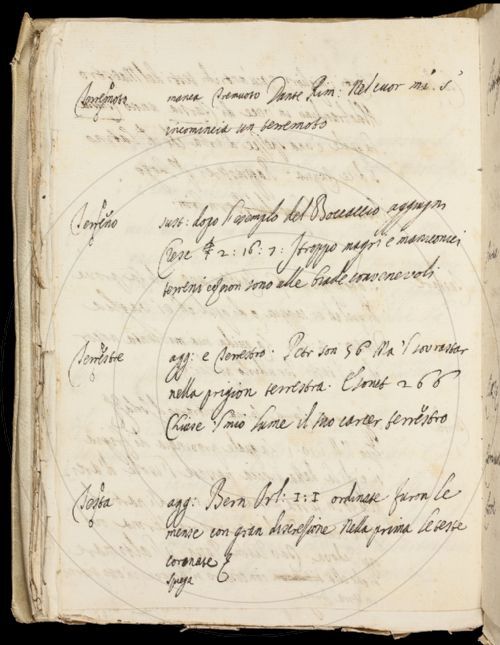 Terremoto manca Tremuoto Dante Rim: Nel cuor mi s'
incomincia un terremoto
Terreno sust: dopo l'esempio del Boccaccio aggiugni
Cresc 2: 16: 3: stroppo magri e manconcei
terreni e non sono alle biade convenevoli
Terrestre agg: e Terrestro. Petr son 56 Ma 'l sovrastar
nella prigion terrestra. E sonet 266
Chiuse 'l mio lume il suo carcer terrestro
Testa agg: Bern Orl: I: I ordinate furon le
mense con gran discressione Nella prima le teste
coronate &
spiega